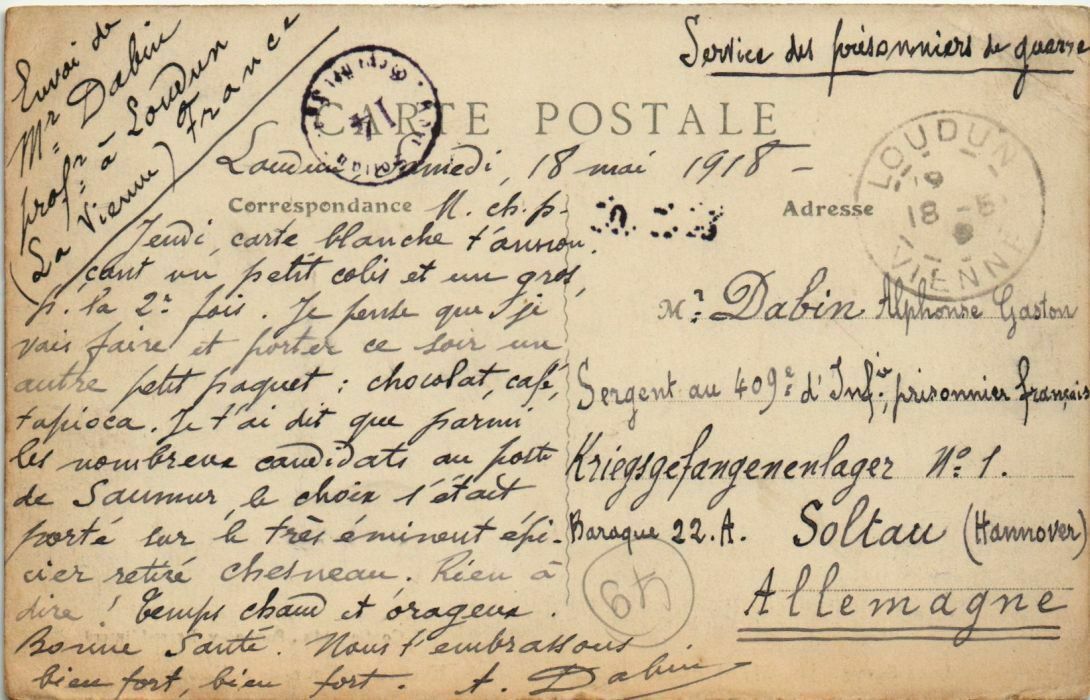 Envoi de
Mr Dabin
profr à Loudun
(La Vienne) France
Service des prisonniers de guerre
CARTE POSTALE
Loudun, samedi, 18 mai 1918 -
Correspondance
Adresse
LOUDUN
18 -5
VIENNE
M. ch. p.
Jeudi, carte blanche t'annon-
çant un petit colis et un gros,
p. la 2e fois. Je pense que j'je
vais faire et porter ce soir un
autre petit paquet : chocolat, café,
tapioca. Je t'ai dit que parmi
les nombreux candidats au poste
de Saumur, le choix s'était
porté sur le très éminent épi-
cier retiré Chesneau. Rien à
dire ! Temps chaud et orageux.
Bonne Santé. Nous t'embrassons
bien fort, bien fort. A. Dabin
Mr Dabin Alphonse Gaston
Sergent au 409e d'Infie, prisonnier français
Kriegsgefangenenlager No 1.
Baraque 22.A. Soltau (Hannover)
Allemagne